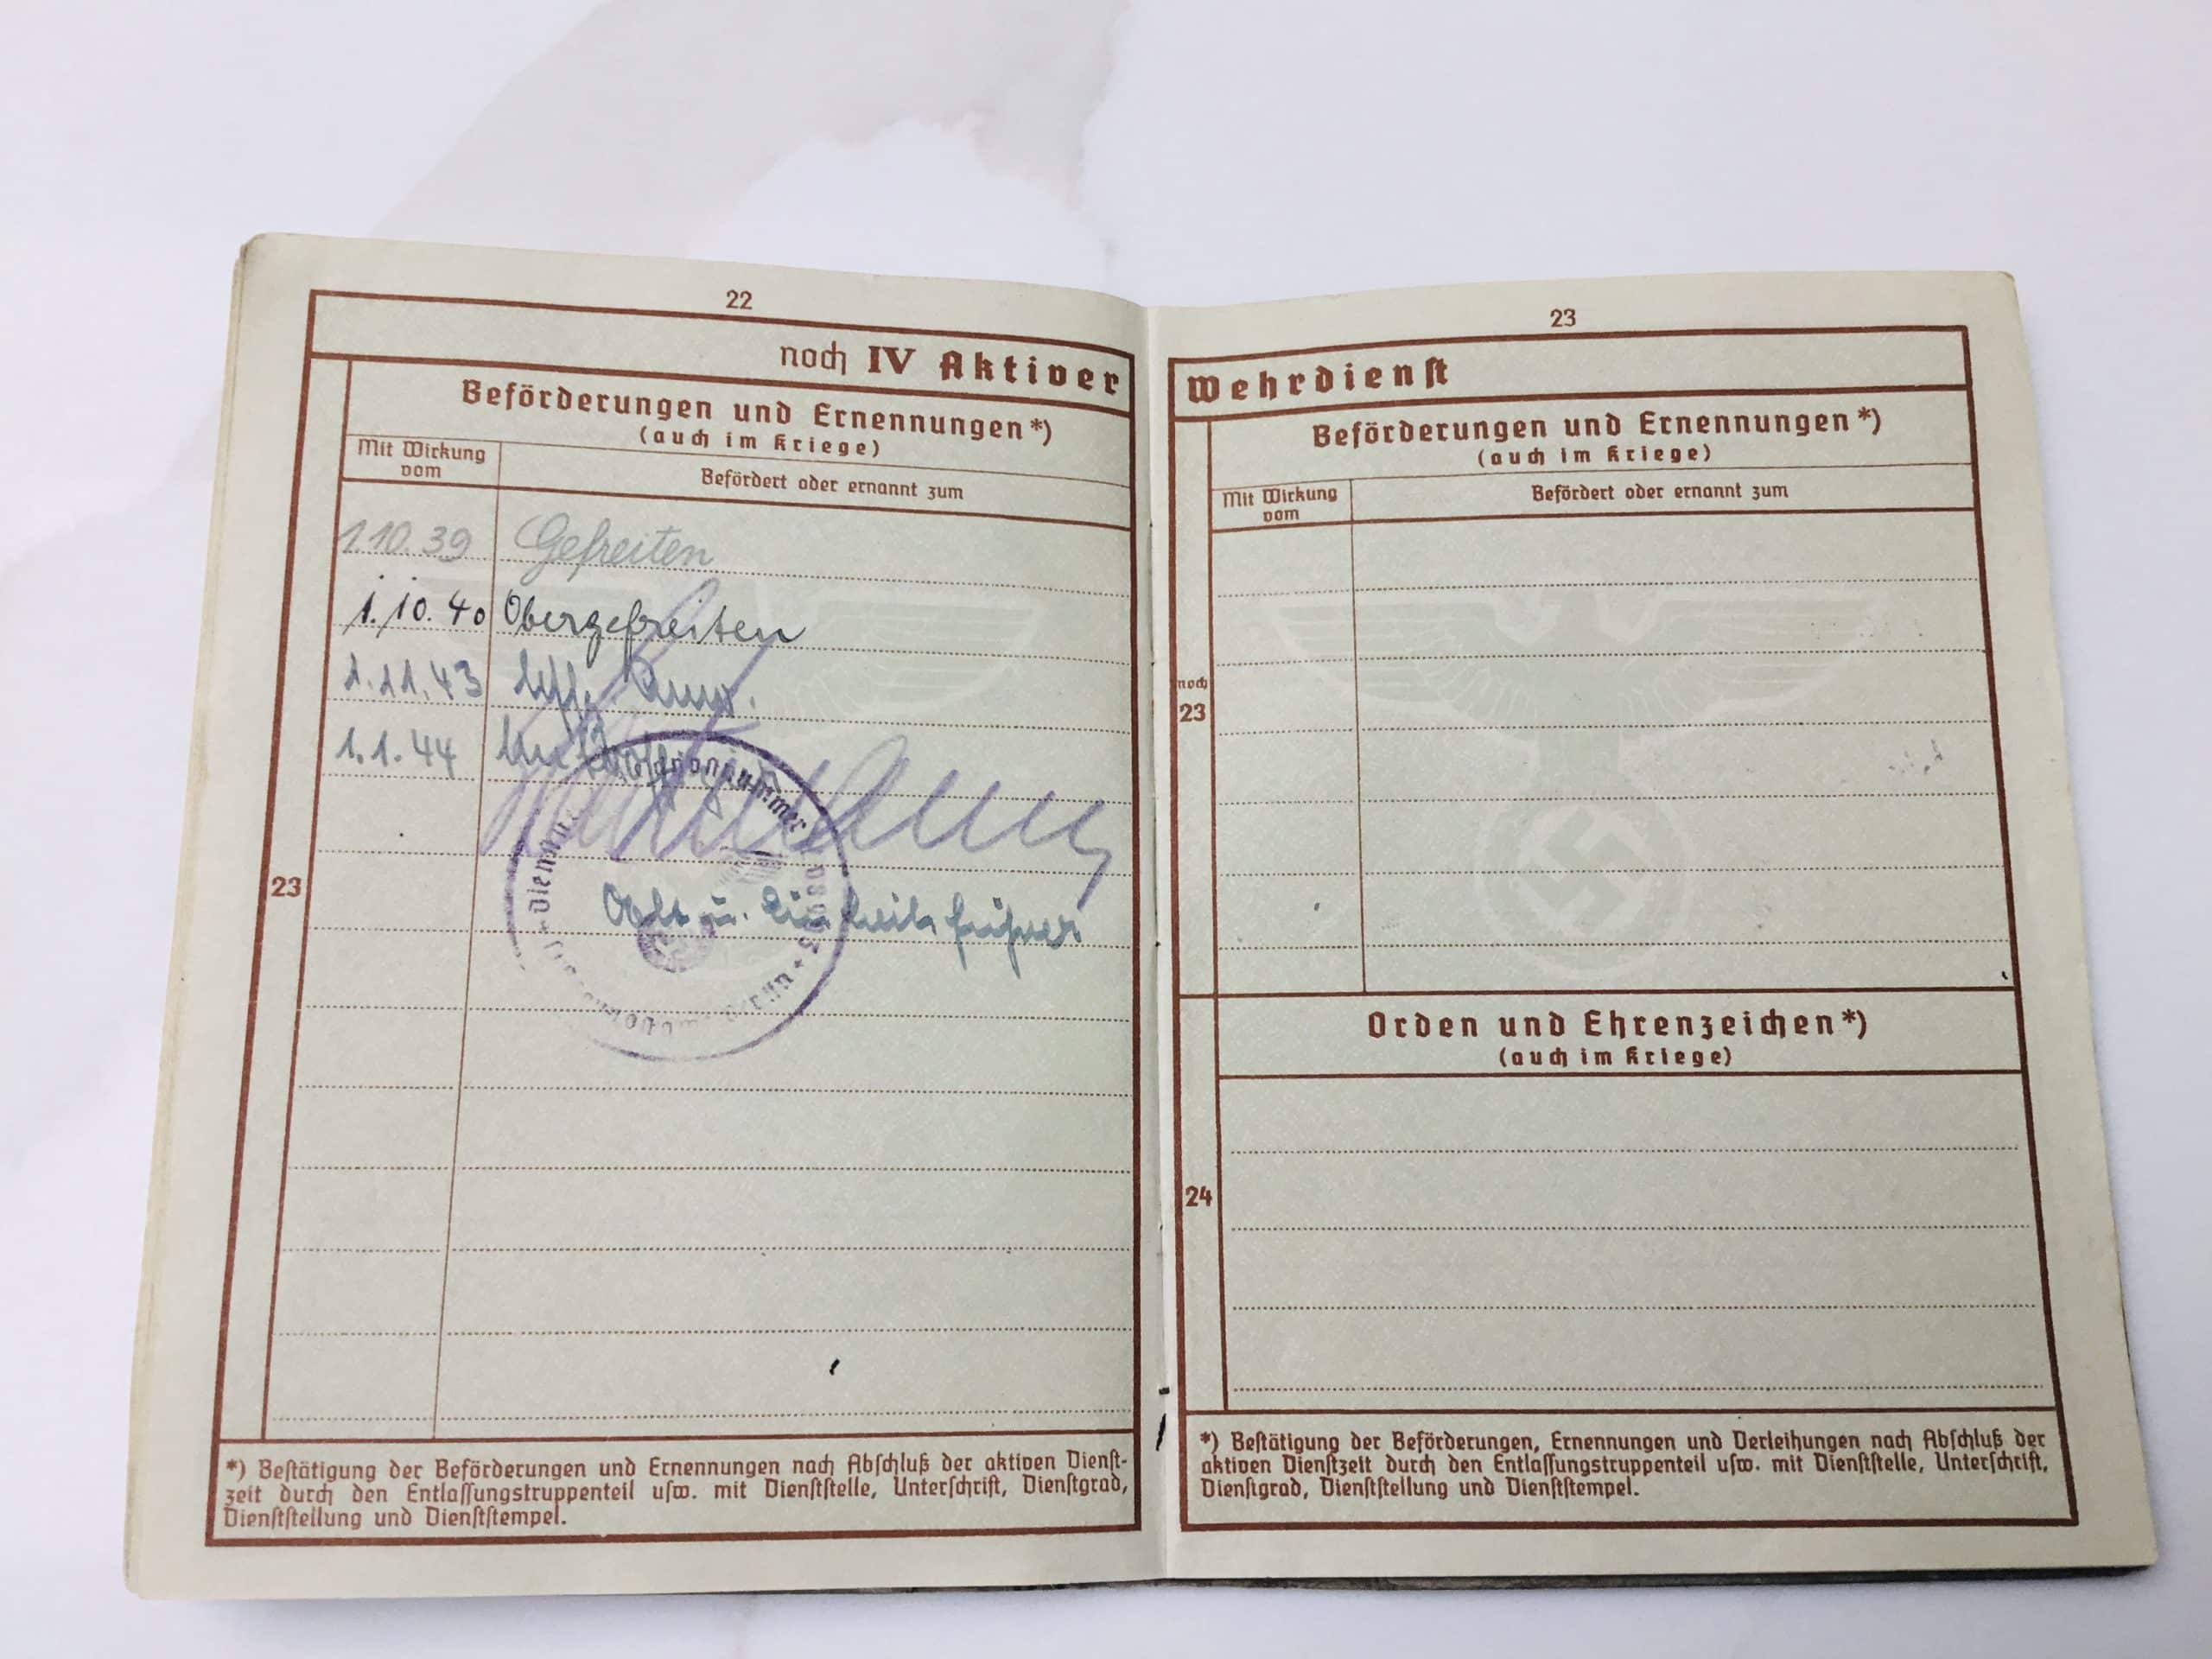 22
noch IV Aktiver
Beförderungen und Ernennungen*)
(auch im Kriege)
Mit Wirkung vom
Befördert oder ernannt zum
1.10.39 Gefreiten
1.10.40 Obergefreiten
1.11.43
1.1.44 Unteroffizier
Oblt u. Einheitsführer
23
*) Bestätigung der Beförderungen und Ernennungen nach Abschluß der aktiven Dienst-
zeit durch den Entlassungstruppenteil usw. mit Dienststelle, Unterschrift, Dienstgrad,
Dienststellung und Dienststempel.
23
Wehrdienst
Beförderungen und Ernennungen*)
(auch im Kriege)
Mit Wirkung vom
Befördert oder ernannt zum
noch
23
Orden und Ehrenzeichen*)
(auch im Kriege)
24
*) Bestätigung der Beförderungen, Ernennungen und Verleihungen nach Abschluß der
aktiven Dienstzeit durch den Entlassungstruppenteil usw. mit Dienststelle, Unterschrift,
Dienstgrad, Dienststellung und Dienststempel.